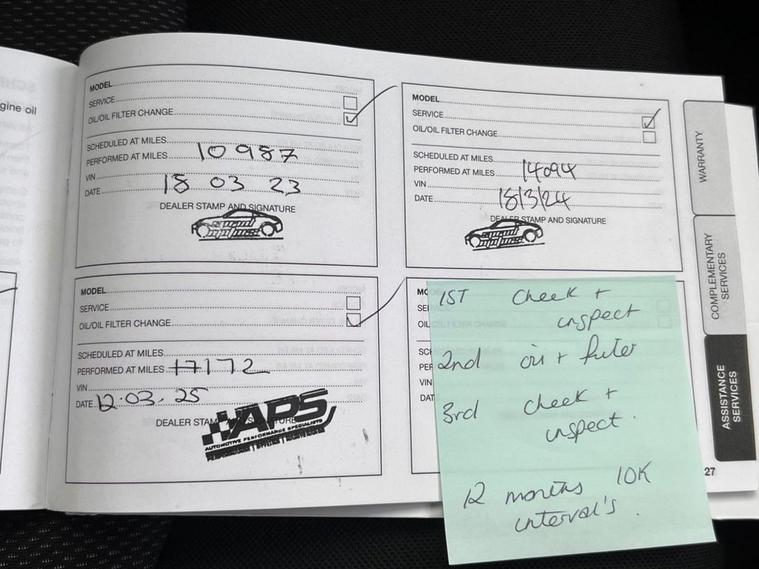 gine oil
MODEL
SERVICE
OIL/OIL FILTER CHANGE
SCHEDULED AT MILES
PERFORMED AT MILES 10987
VIN
DATE 18 03 23
DEALER STAMP AND SIGNATURE
MODEL
SERVICE
OIL/OIL FILTER CHANGE
SCHEDULED AT MILES
PERFORMED AT MILES 14094
VIN
DATE 18/3/24
DEALER STAMP AND SIGNATURE
MODEL
SERVICE
OIL/OIL FILTER CHANGE
SCHEDULED AT MILES
PERFORMED AT MILES 17172
VIN
DATE 12.03.25
DEALER STAM
APS
AUTOMOTIVE PERFORMANCE SPECIALISTS
1ST check +
inspect
2nd oil + filter
3rd check +
inspect.
12 months 10K
interval's.
WARRANTY
COMPLEMENTARY
SERVICES
ASSISTANCE
SERVICES
27